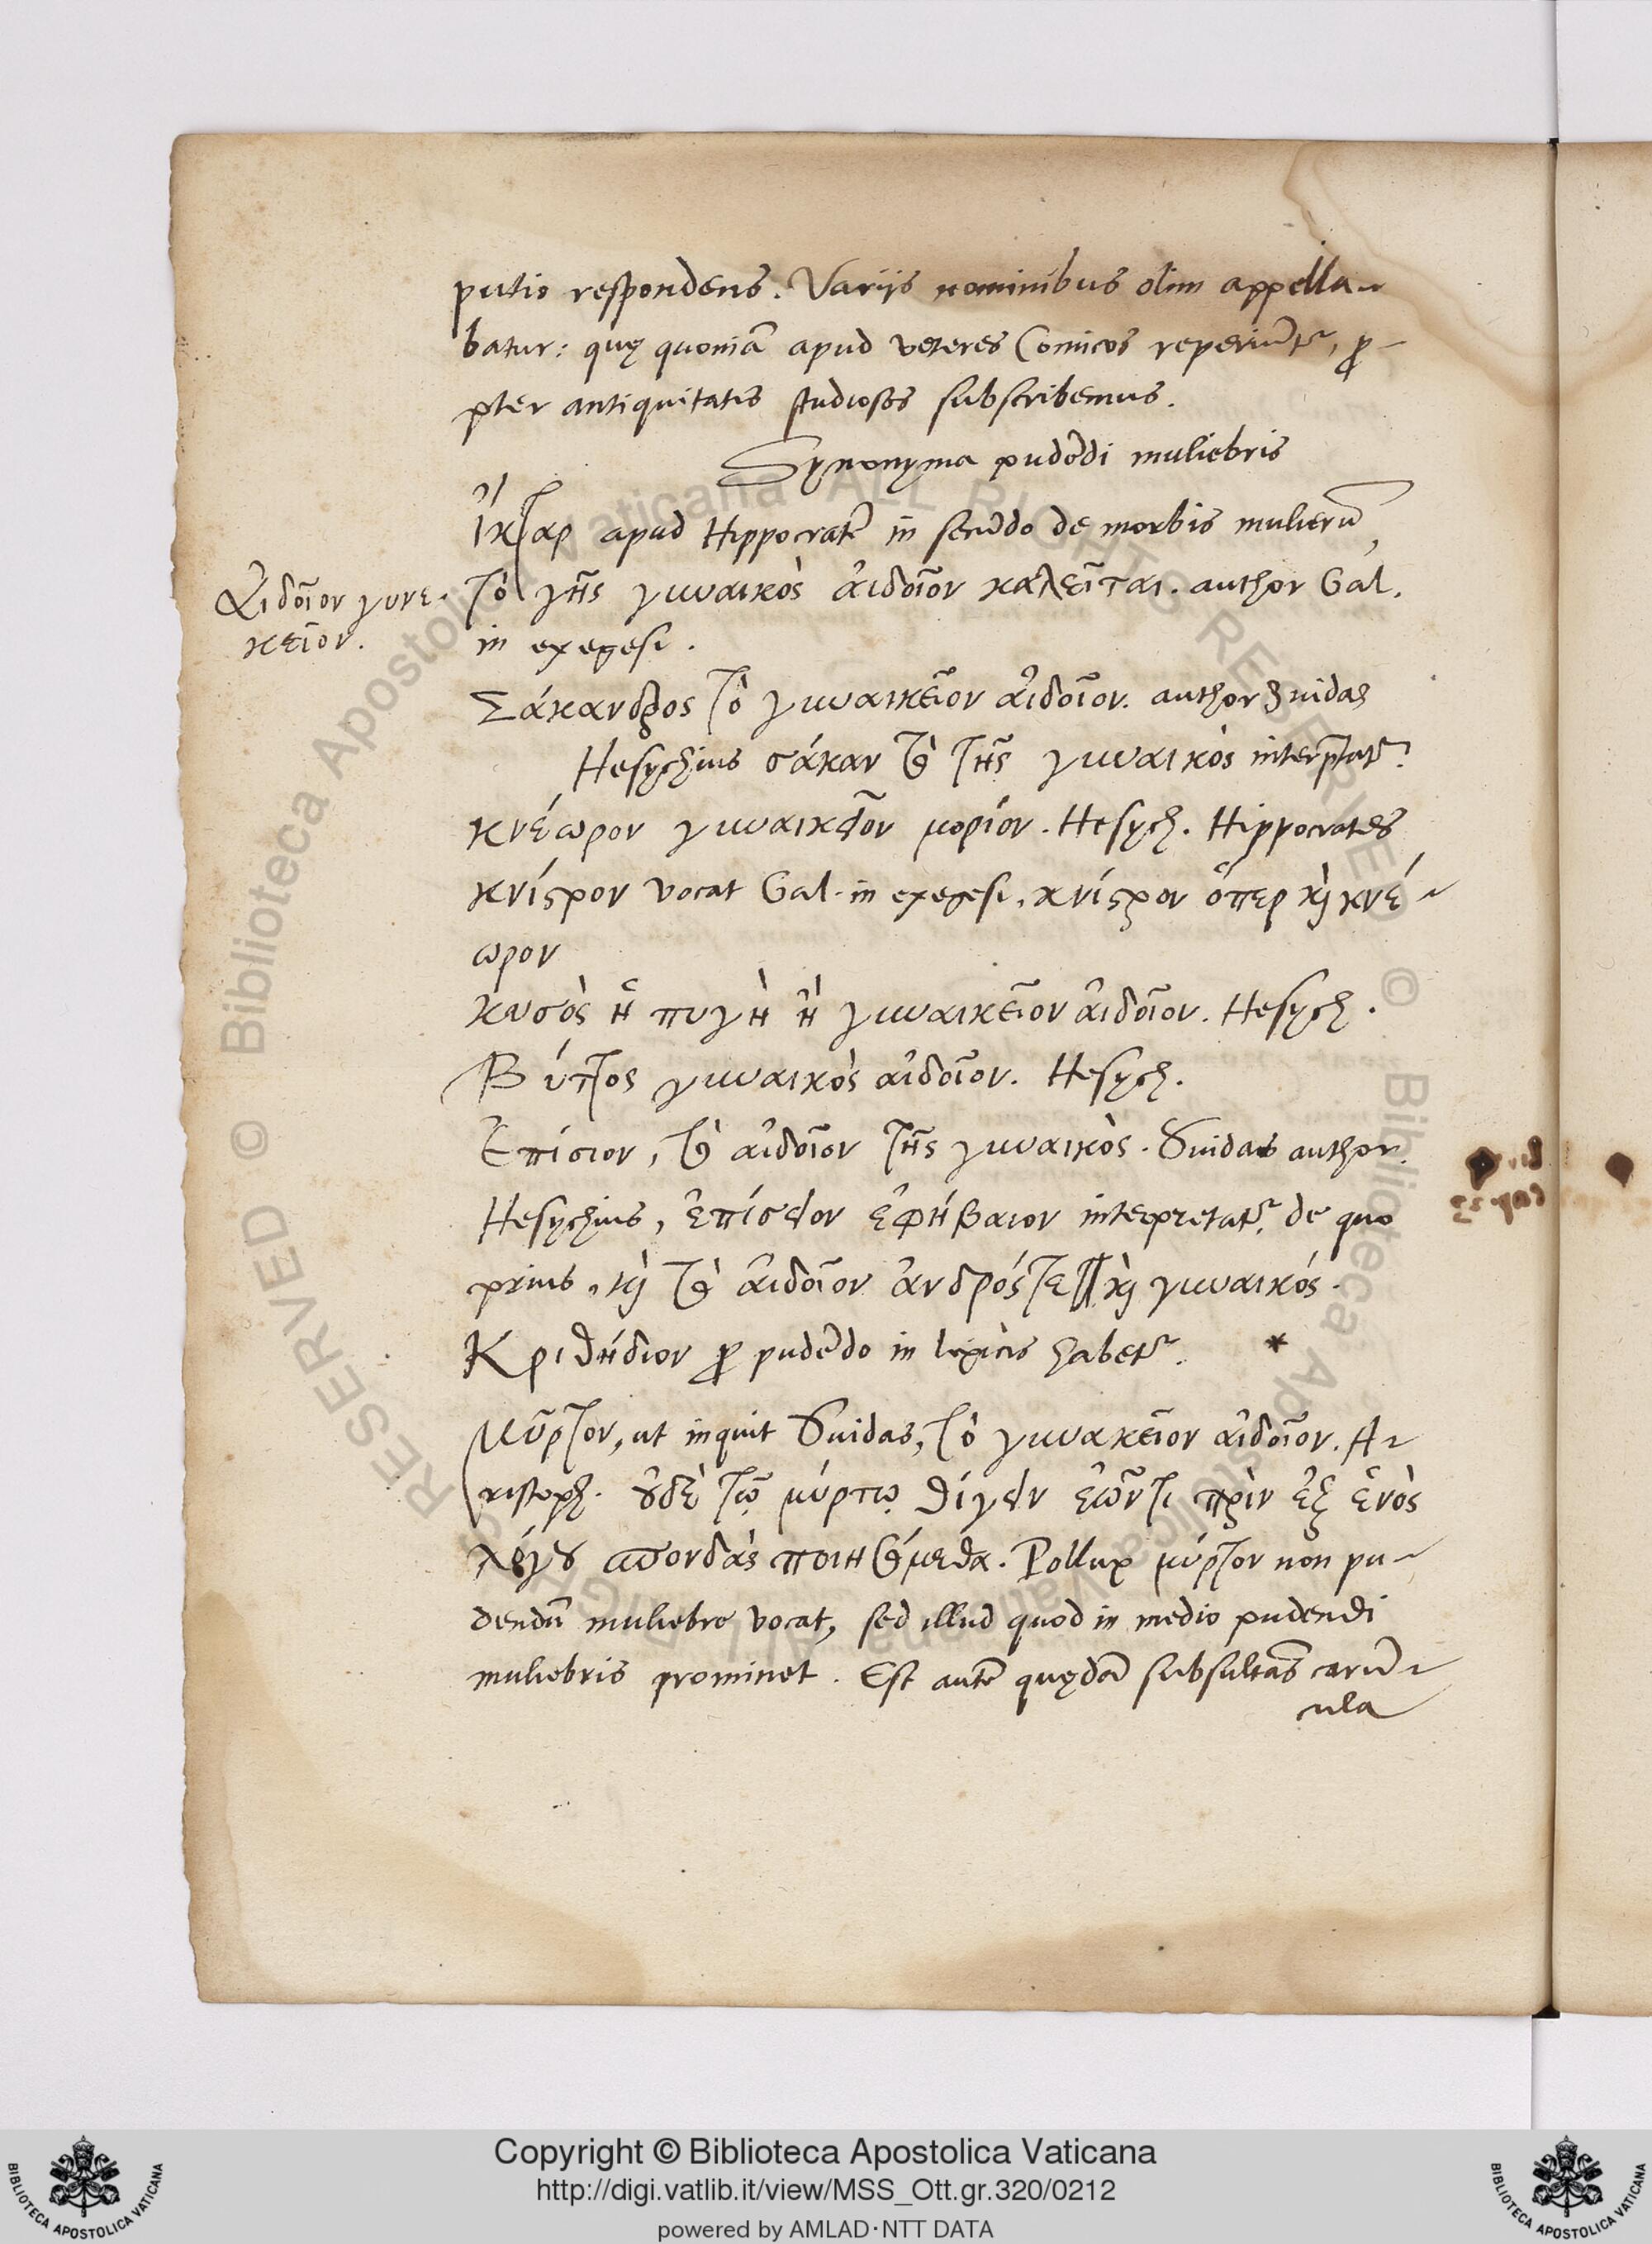 putio respondens. Varijs nominibus olim appella-
batur: quę quoniã apud veteres Comicos reperiũtr, ꝓ-
pter antiquitatis studiosos subscribemus.
Synonyma pudẽdi muliebris
ἴκταρ apud Hippocratẽ in secũdo de morbis mulierũ,
Αἰδοῖον γυνε-
κεῖον.
τὸ γῆς γυναικὸς αἰδοῖον καλεῖται. author Gal.
in exegesi.
Σάκανδρος τὸ γυναικεῖον αἰδοῖον. author Suidas
Hesychius σάκαν τὸ τῆς γυναικὸς interp̃tatr.
κνέωρον γυναικεῖον μορίον. Hesych. Hippocrates
κνίςρον vocat Gal. in exegesi. κνίςρον ὅπερ καὶ κνέ-
ωρον
κυσὸς ἡ πυγὴ ἢ γυναικεῖον αἰδοῖον. Hesych.
Βύττος γυναικὸς αἰδοῖον. Hesych.
Ἐπίσιον, τὸ αἰδοῖον τῆς γυναικὸς. Suidas author.
Hesychius, ἐπίσειον ἐφήβαιον interpretatr. de quo
prius. καὶ τὸ αἰδοῖον ἀνδρός τε καὶ γυναικός.
Κριθήδιον ꝓ pudẽdo in lexicis habetr. *
Μῦρτον, ut inquit Suidas, τὸ γυνακεῖον αἰδοῖον. A-
ristoph. ουδὲ τῷ μύρτῳ θίγειν ἐῶντι πρὶν ἐξ ἑνὸς
λόγου σπονδὰς ποιησόμεθα. Pollux μύρτον non pu-
dendũ muliebre vocat, sed illud quod in medio pudendi
muliebris prominet. Est autẽ quędã subsultãs carũ-
cula
Copyright © Biblioteca Apostolica Vaticana
http://digi.vatlib.it/view/MSS_Ott.gr.320/0212
powered by AMLAD·NTT DATA
BIBLIOTECA APOSTOLICA VATICANA
BIBLIOTECA APOSTOLICA VATICANA